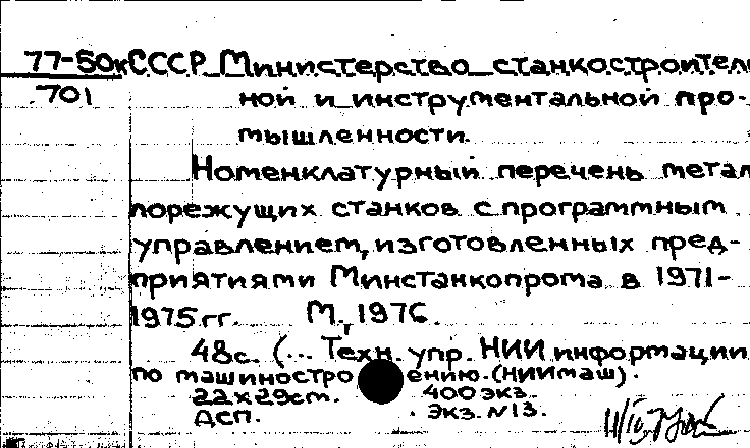 77-50к СССР. Министерство станкостроитель
701 ной и инструментальной про-
мышленности.
Номенклатурный перечень метал
лорежущих станков с программным
управлением, изготовленных пред-
приятиями Минстанкопрома в 1971-
1975 гг. М., 1976.
48с. (... Техн. упр. НИИ информации
по машиностро ению. (НИИмаш).
22х29см. 400 экз.
ДСП. Экз. N13.